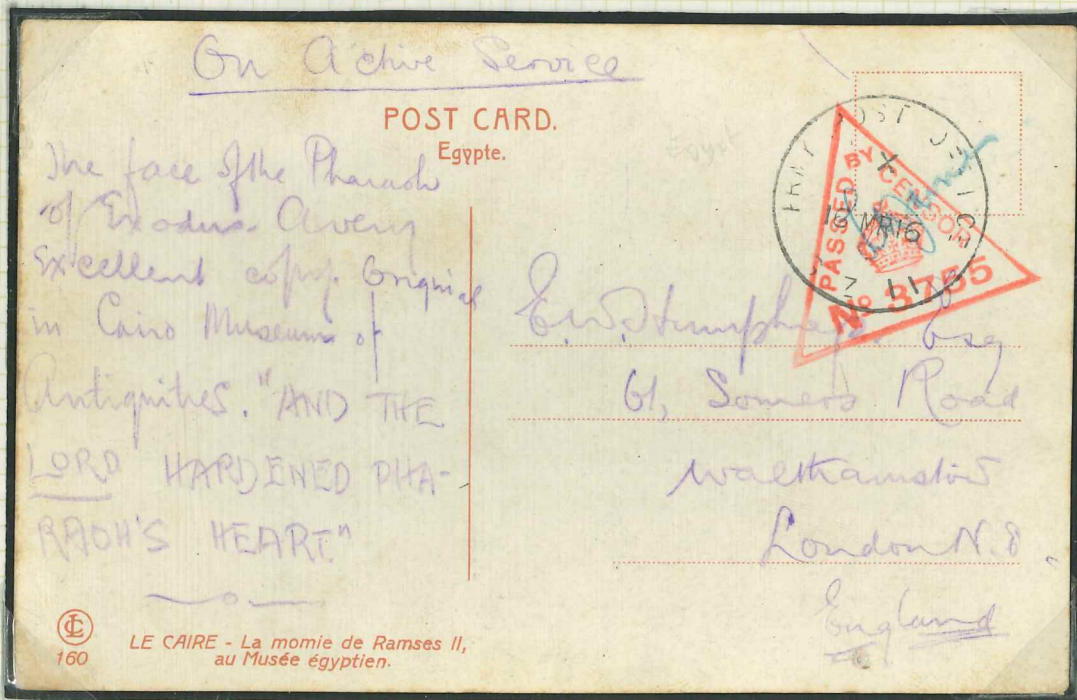 On Active Service
POST CARD.
Egypte.
The face of the Pharaoh
of Exodus. A very
Excellent copy. Original
in Cairo Museum of
Antiquities. "AND THE
LORD HARDENED PHA-
RAOH'S HEART"
Egypt
PASSED BY CENSOR
No 3755
ARMY POST OFFICE
X
16 MR 16
SZ 11
E. W. Humphreys. Esq
61, Somers Road
Walthamstow
London N.E.
England
LE CAIRE - La momie de Ramses II,
au Musée égyptien.
160